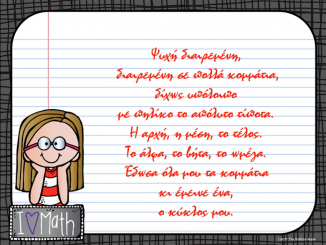 Ψυχή διαιρεμένη,
διαιρεμένη σε πολλά κομμάτια,
δίχως υπόλοιπο
με πηλίκο το απόλυτο τίποτα.
Η αρχή, η μέση, το τέλος.
Το άλφα, το βήτα, το ωμέγα.
Έδωσα όλα μου τα κομμάτια
κι έμεινε ένα,
ο κύκλος μου.
I Math